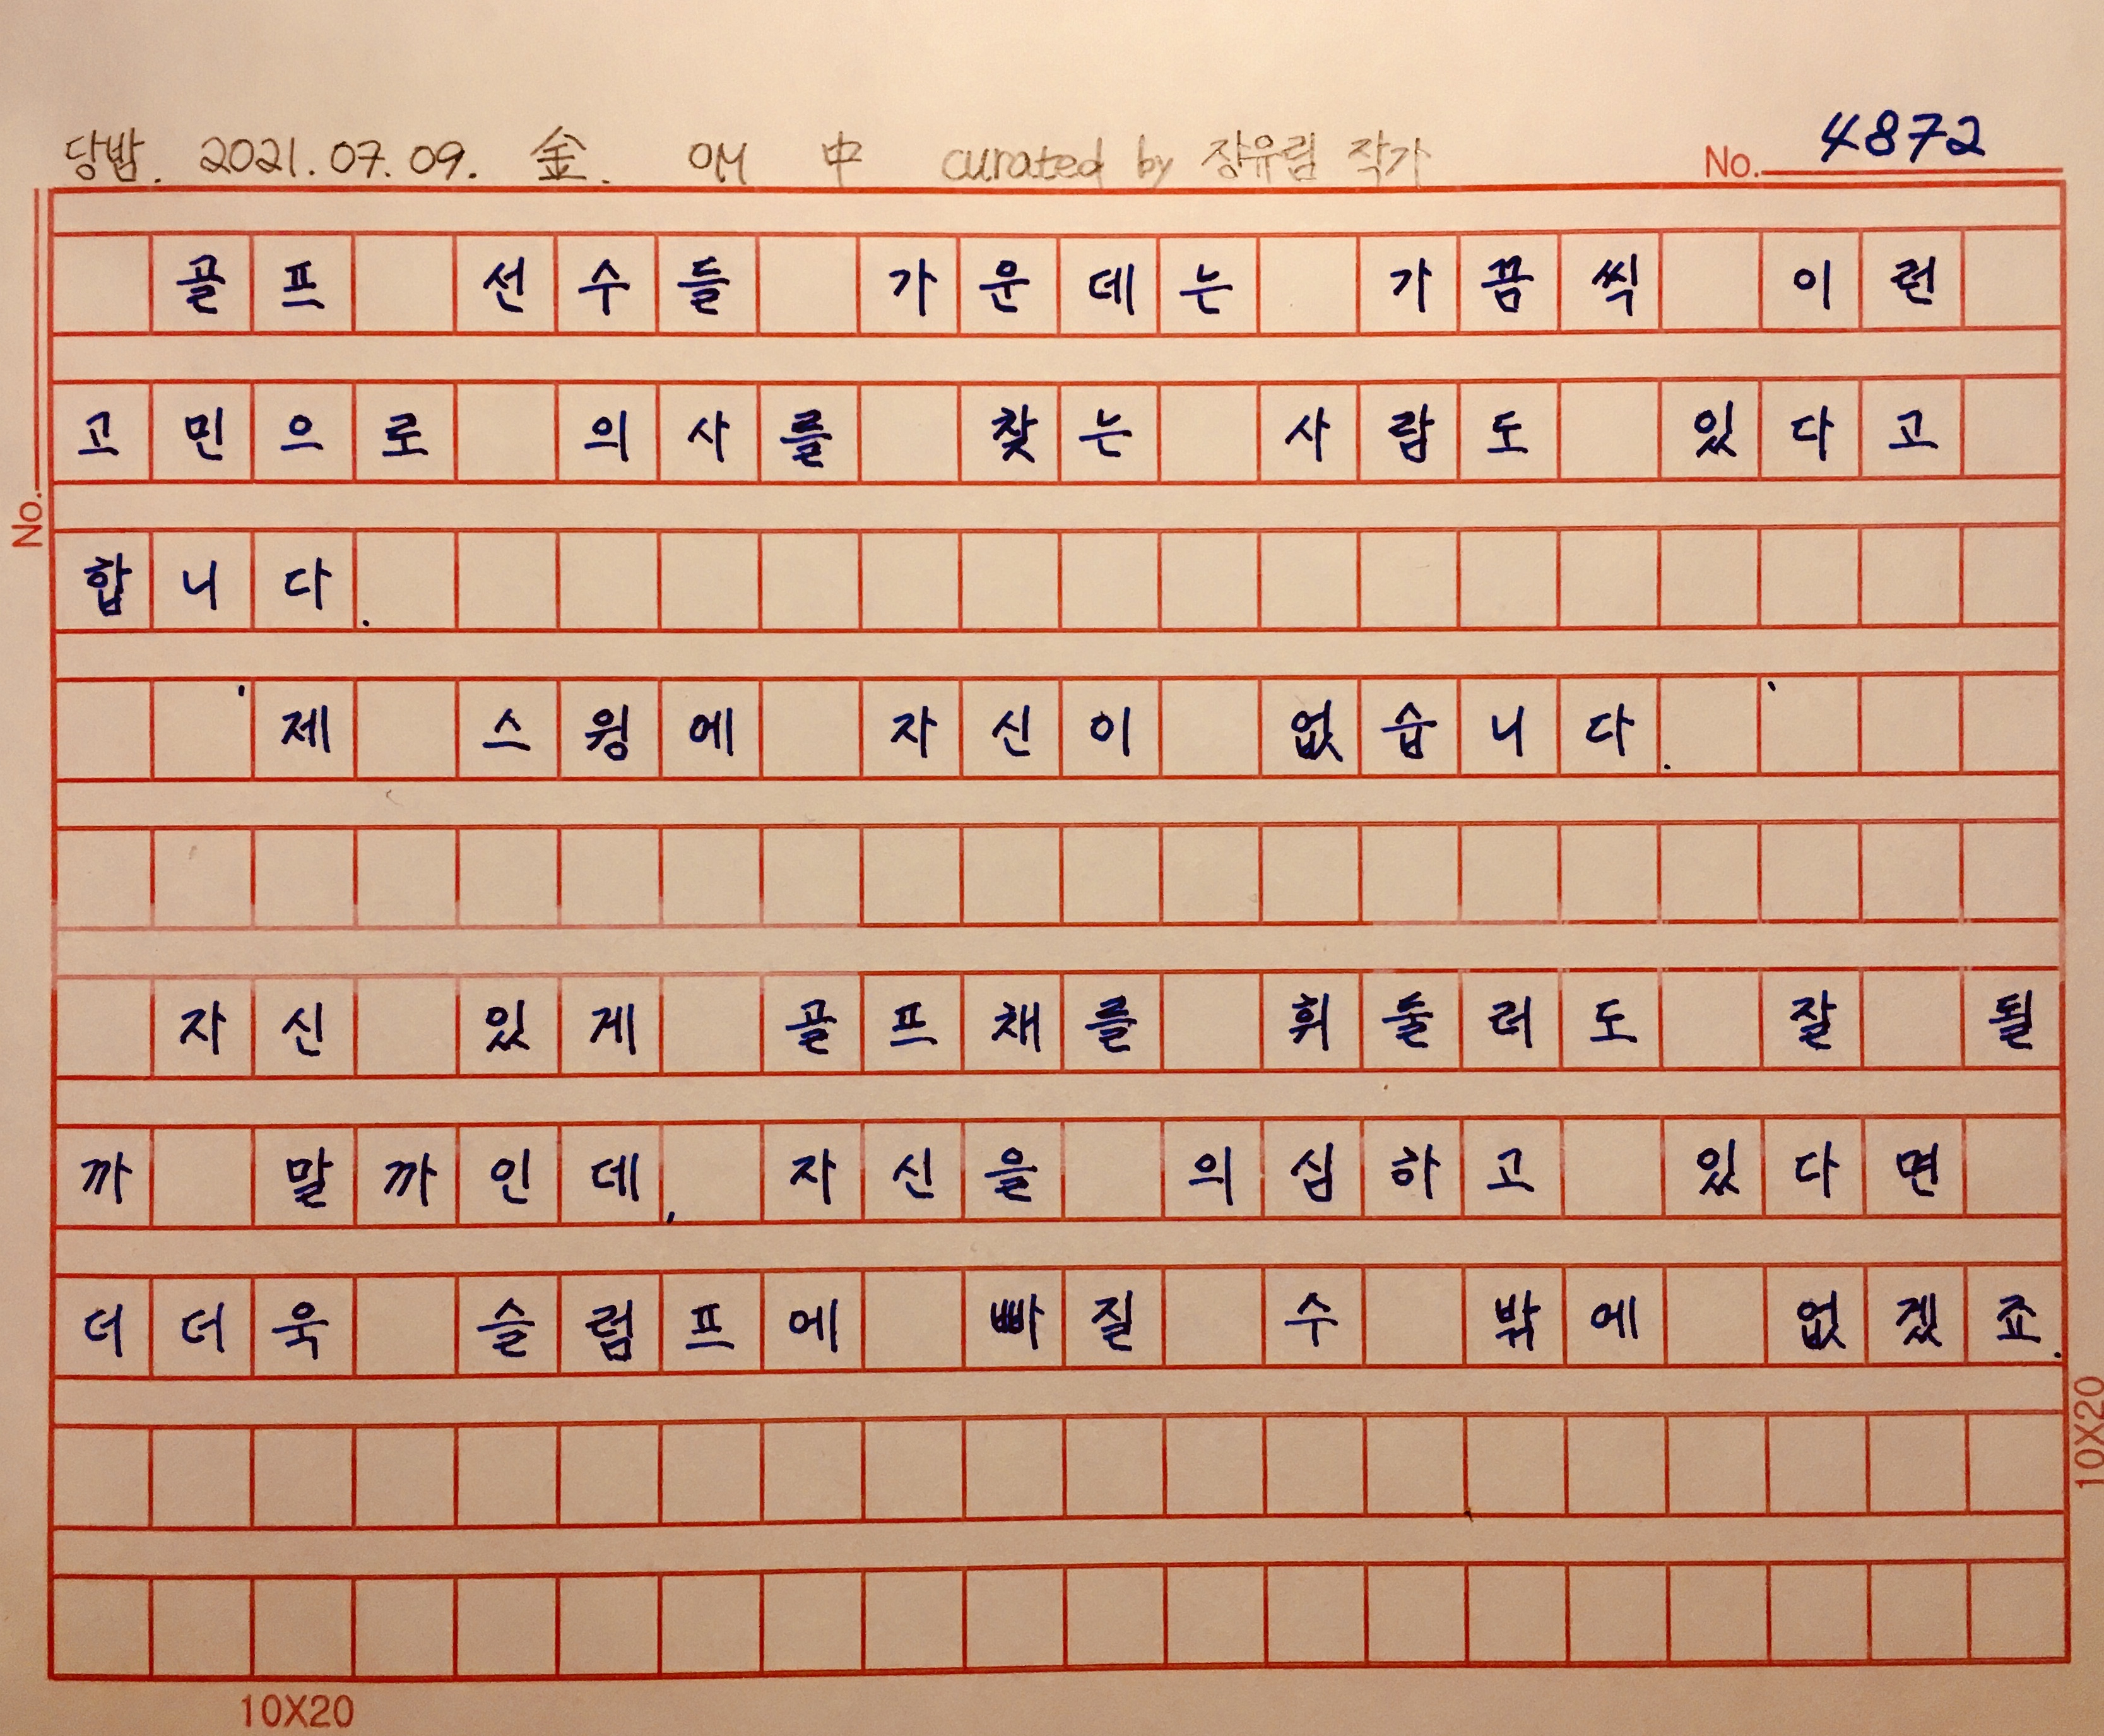 당밤. 2021.07.09. 金. 매 中 curated by 장유림 작가
No. 4872
골프 선수들 가운데는 가끔씩 이런
고민으로 의사를 찾는 사람도 있다고
합니다.
'제 스윙에 자신이 없습니다.'
자신 있게 골프채를 휘둘러도 잘 될
까 말까인데, 자신을 의심하고 있다면
더더욱 슬럼프에 빠질 수 밖에 없겠죠.
No.
10X20
10X20